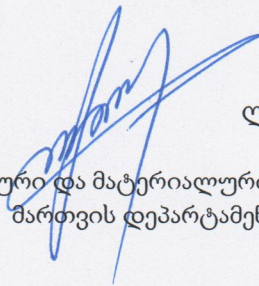 ური და მატერიალური
მართვის დეპარტამენ